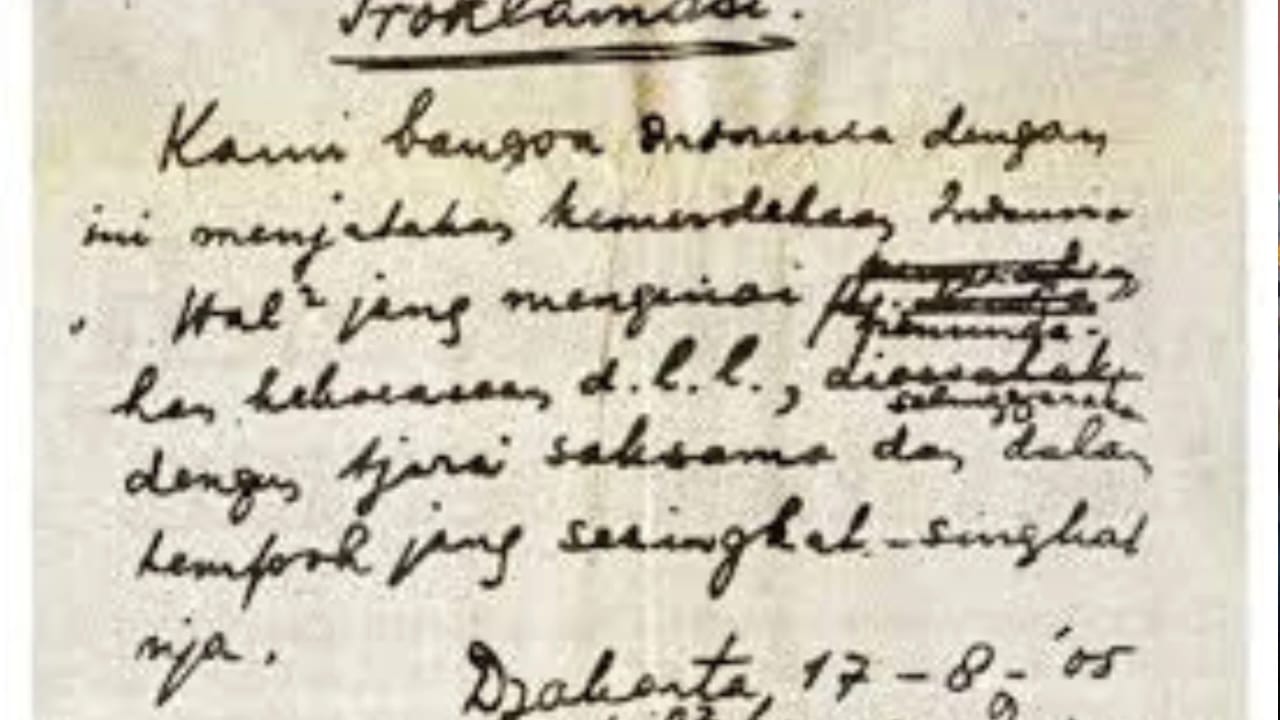 Proklamasi.
Kami bangsa Indonesia dengan
ini menjatakan kemerdekaan Indonesia
. Hal² jang mengenai
peminda-
han kekoeasaan d.l.l.,
diselenggarakan
dengan tjara saksama dan dalam
tempoh jang sesingkat-singkat
nja.
Djakarta, 17-8-'05